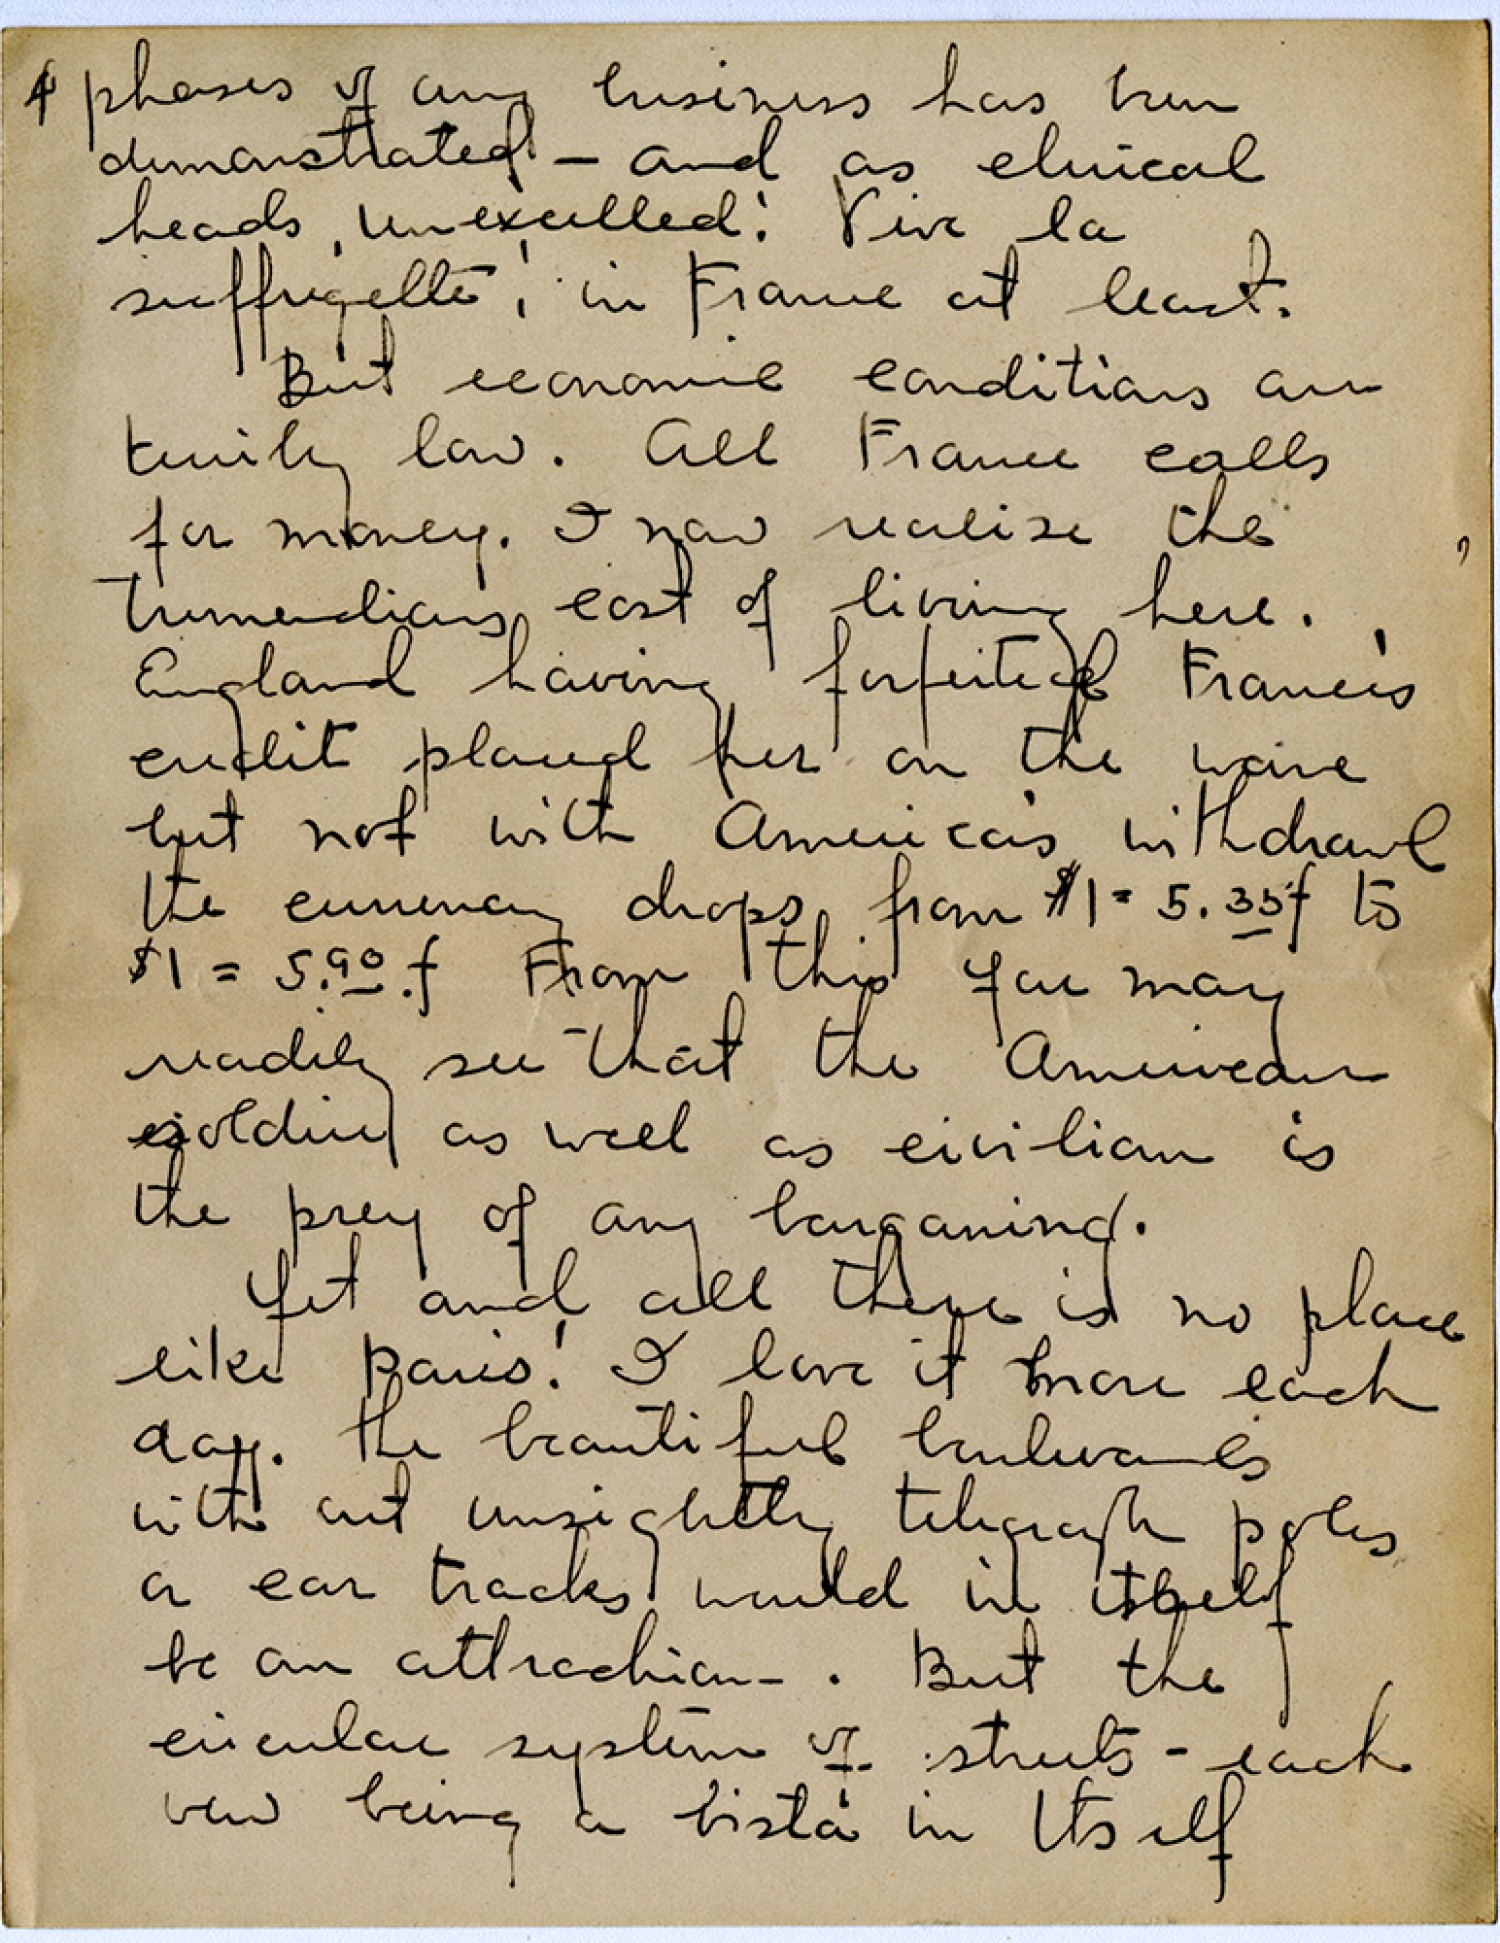 4 phases of any business has been
demonstrated – and as clerical
heads, unexcelled! Vive la
suffrigette, in France at least.
But economic conditions are
terribly low. All France calls
for money. I now realize the
tremendious cost of living here.
England having forfeited France's
credit placed her on the wane
but not with America's withdrawl
the currency drops from $1 = 5.35f to
$1 = 5.90.f From this you may
readily see that the American
soldier as well as civilian is
the prey of any barganing.
Yet and all there is no place
like Paris! I love it more each
day. The beautiful boulevards
with out unsightly telegraph poles
or car tracks would in itself
be an attraction – . But the
circular system of streets – each
view being a vista in itself